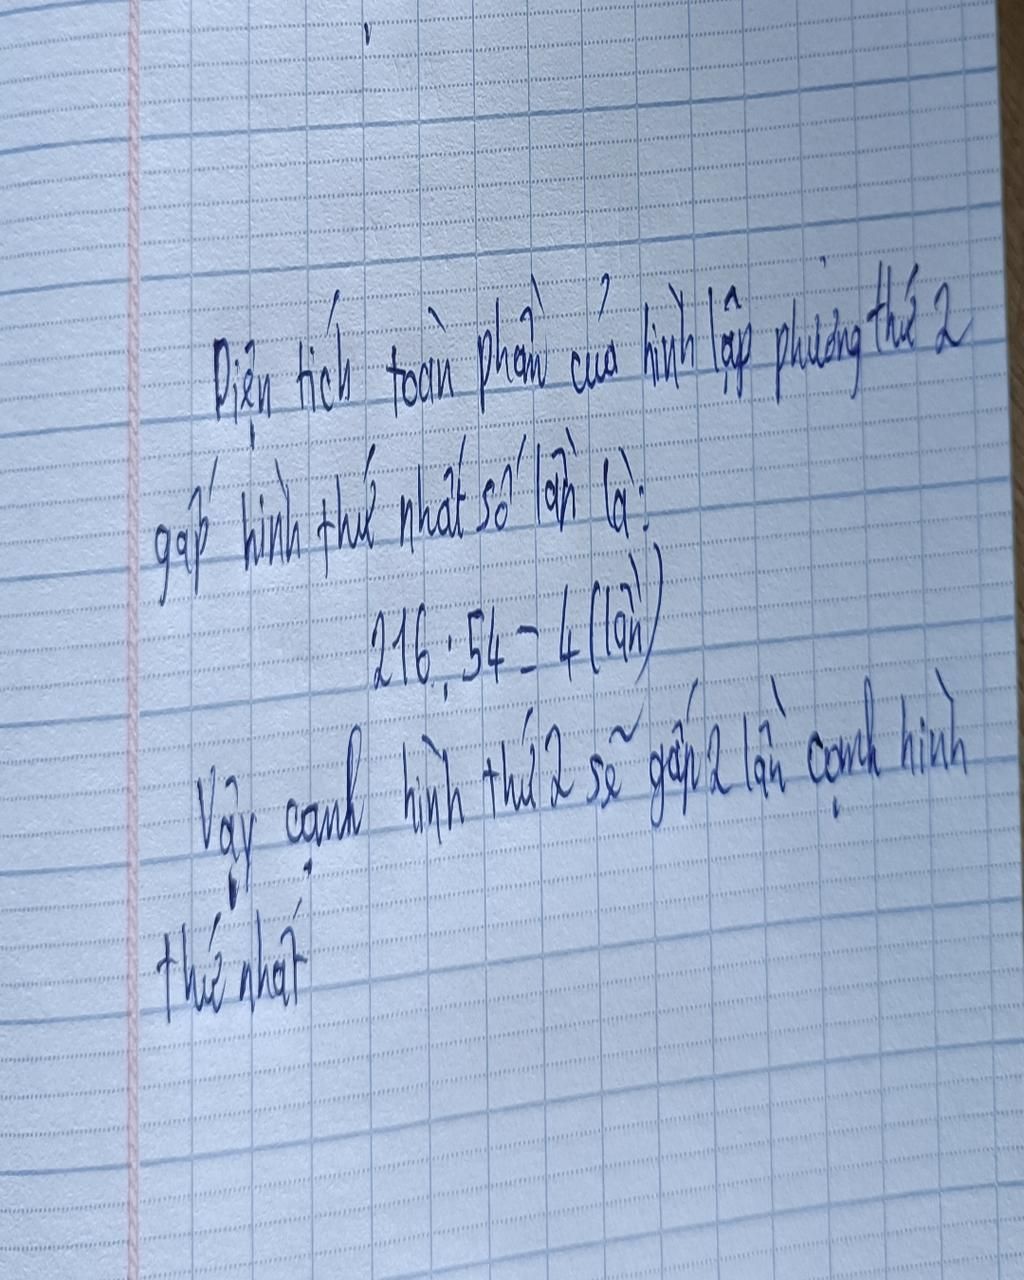 Diện tích toàn phần của hình lập phương thứ 2
gấp hình thứ nhất số lần là:
216 : 54 = 4 (lần)
Vậy cạnh hình thứ 2 sẽ gấp 2 lần cạnh hình
thứ nhất